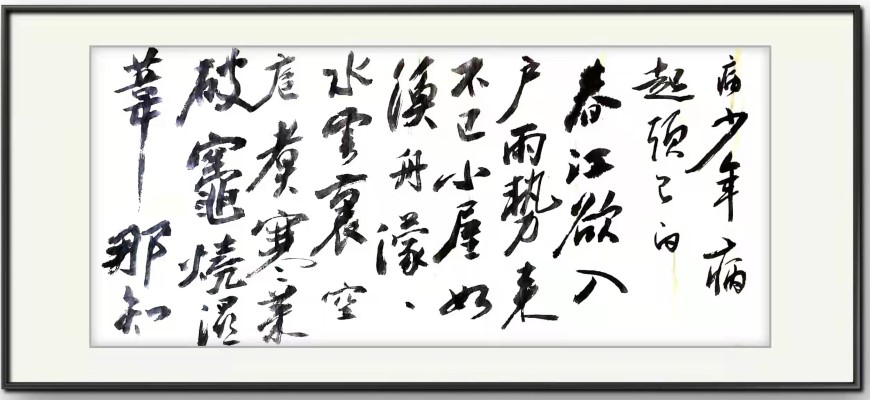 病少年病
起頭已白
春江欲入
戶雨勢來
不已小屋如
漁舟濛丶
水雲裏空
庖煮寒菜
破竈燒濕
葦那知